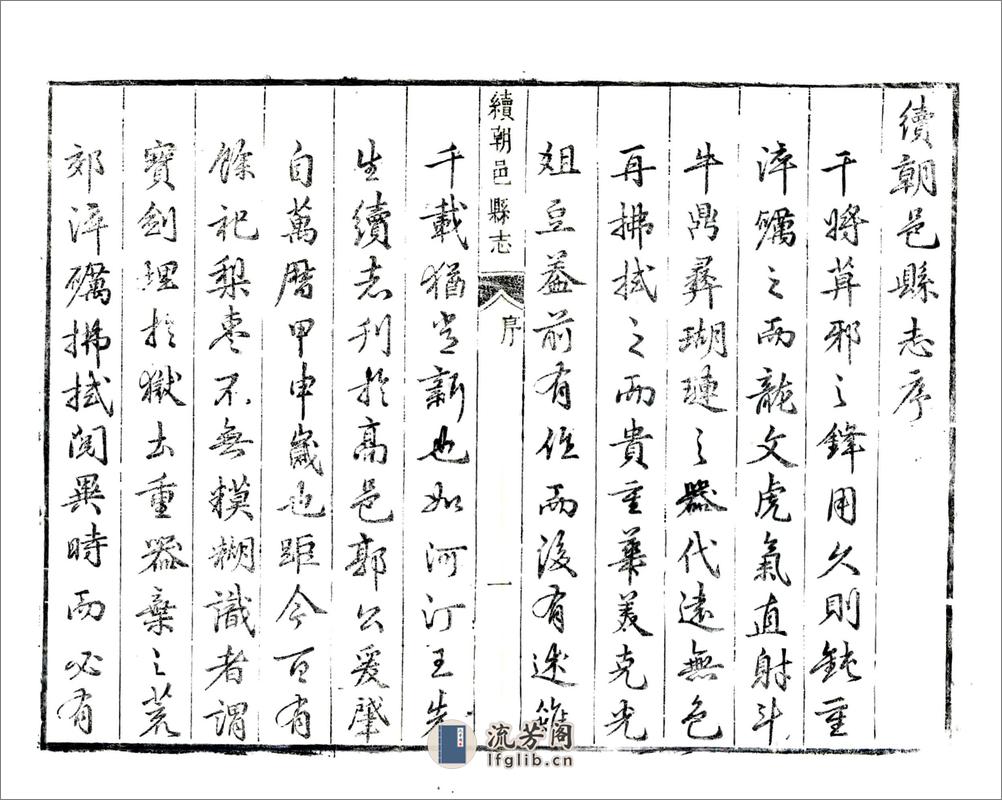 續朝邑縣志序
干將莫邪之鋒用久則鈍重
淬礪之而龍文虎氣直射斗
牛鼎彞瑚璉之器代遠無色
再拂拭之而貴重華美克光
俎豆蓋前有作而後有述雖
續朝邑縣志
序
一
千載猶嘗新也如河汀王先
生續志刊於高邑郭公爰肇
自萬曆甲申歲也距今百有
餘祀梨棗不無糢糊識者謂
寶劍埋於獄土重器棄之荒
郊淬礪拂拭閱異時而必有
流芳阁
lfglib.cn